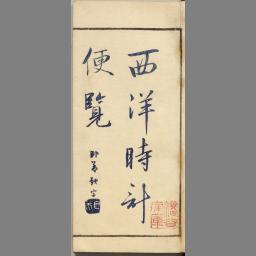 西洋時計
便覽